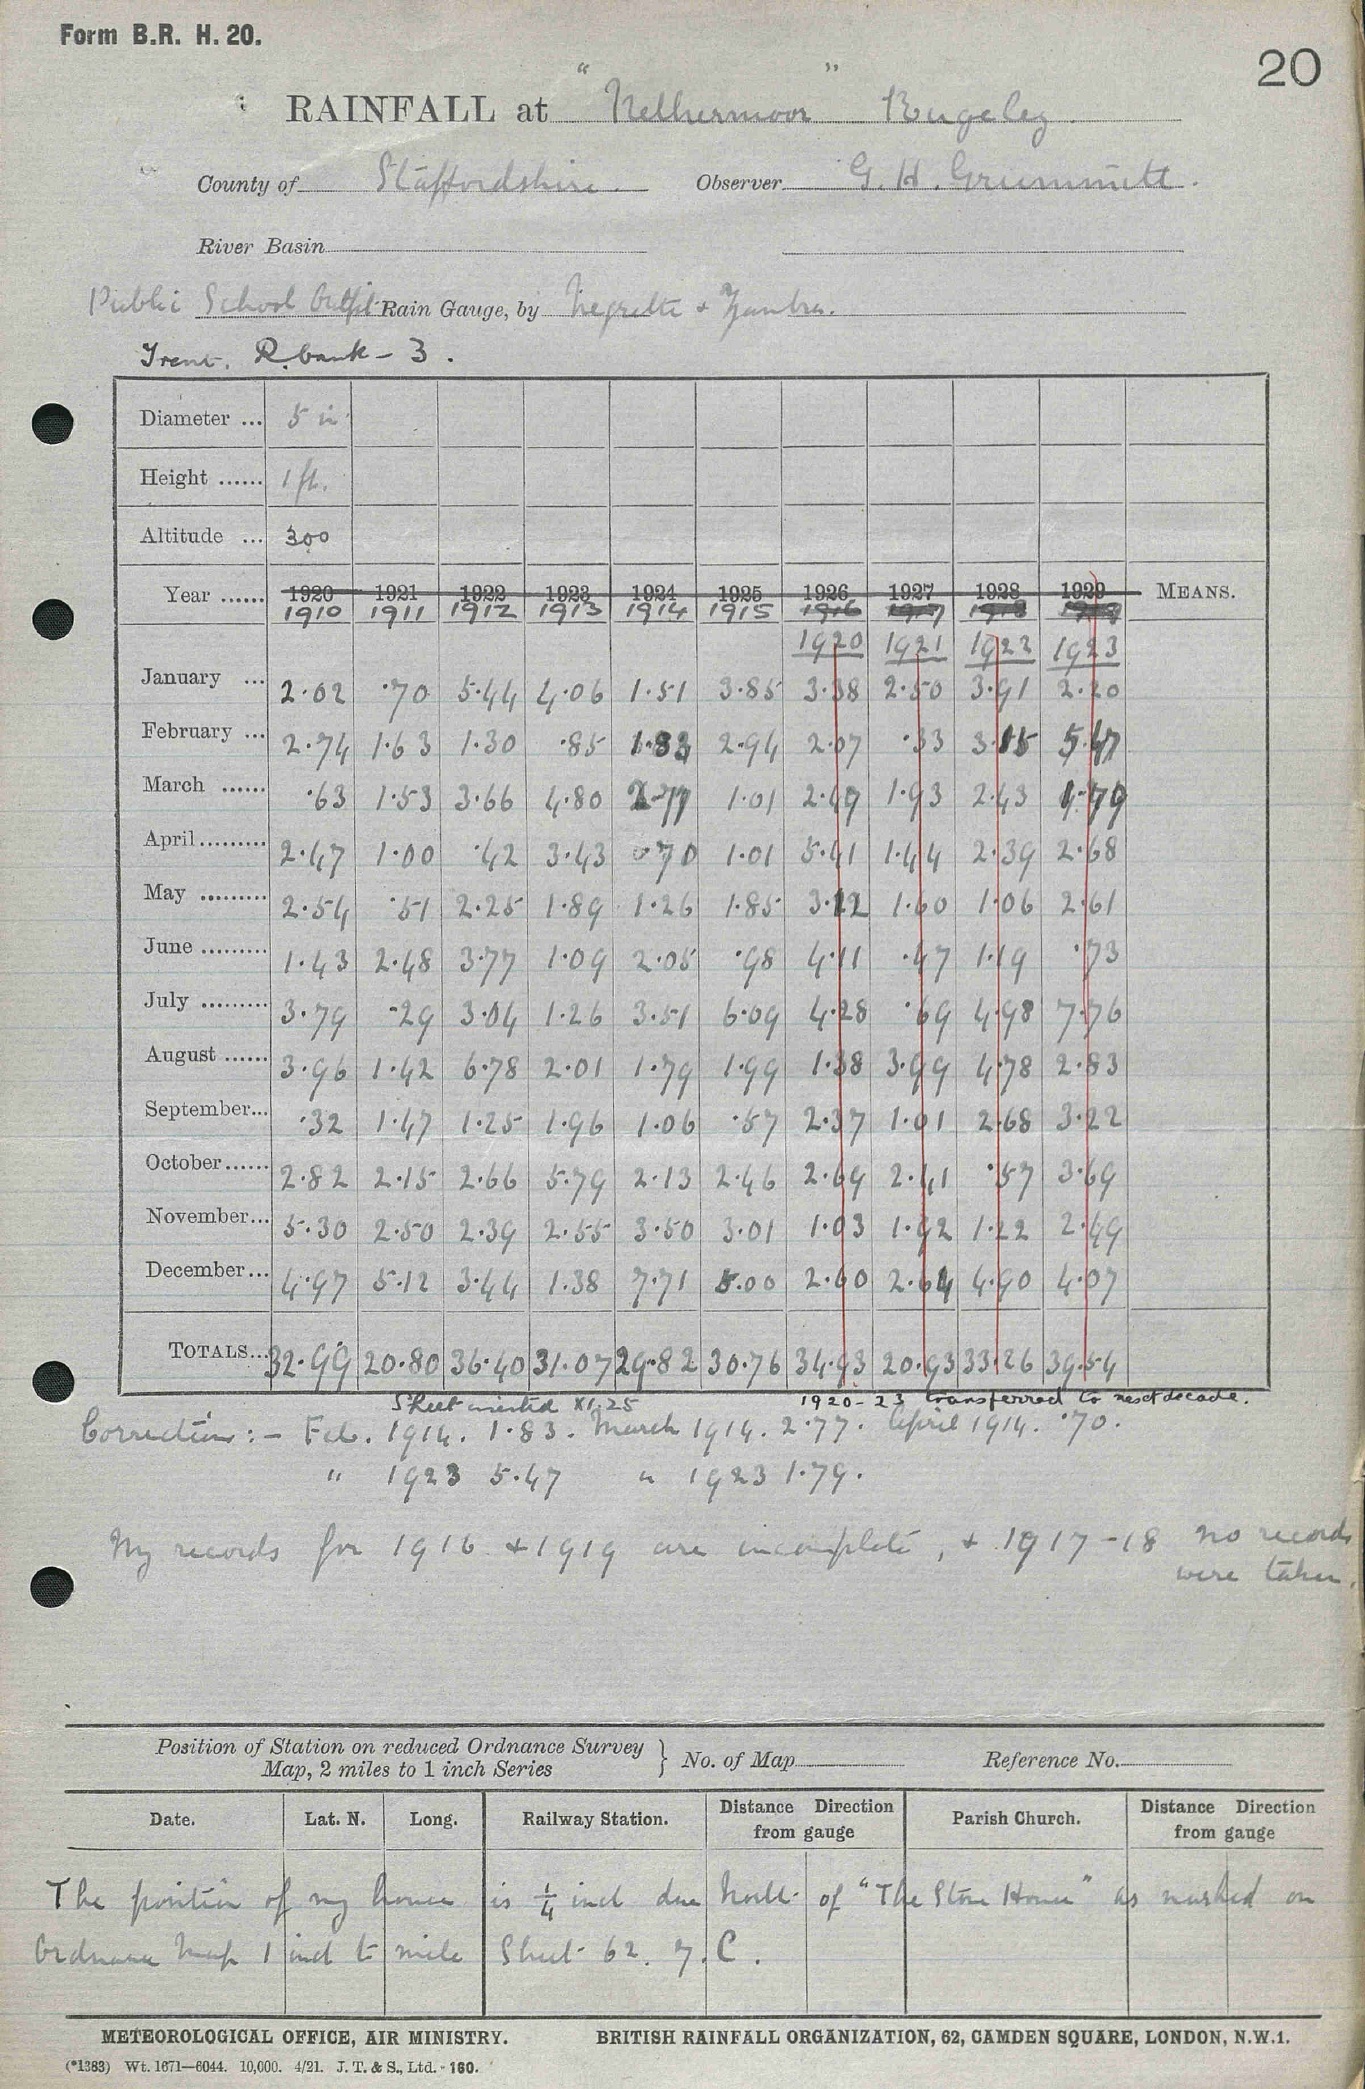 Form B.R. H. 20.
20
RAINFALL at "Nethermoor" Rugeley.
County of Staffordshire. Observer G. H. Grummitt.
River Basin
Public School Outfit Rain Gauge, by Negretti & Zambra.
Trent. R. bank - 3.
Diameter ... 5 in
Height ...... 1 ft.
Altitude ... 300
Year ...... 1920 1921 1922 1923 1924 1925 1926 1927 1928 1929 MEANS.
1910 1911 1912 1913 1914 1915 1916 1917 1918 1919
1920 1921 1922 1923
January ... 2.02 .70 5.44 4.06 1.51 3.85 3.38 2.50 3.91 2.20
February ... 2.74 1.63 1.30 .85 1.83 2.94 2.07 .33 3.15 5.47
March ...... .63 1.53 3.66 4.80 2.77 1.01 2.49 1.93 2.43 1.79
April ......... 2.47 1.00 .42 3.43 .70 1.01 5.41 1.44 2.39 2.68
May ......... 2.54 .51 2.25 1.89 1.26 1.85 3.22 1.60 1.06 2.61
June ......... 1.43 2.48 3.77 1.09 2.05 .98 4.11 .47 1.19 .73
July ......... 3.79 .29 3.04 1.26 3.51 6.09 4.28 .69 4.98 7.76
August ...... 3.96 1.42 6.78 2.01 1.79 1.99 1.38 3.99 4.78 2.83
September... .32 1.47 1.25 1.96 1.06 .57 2.37 1.01 2.68 3.22
October...... 2.82 2.15 2.66 5.79 2.13 2.46 2.69 2.41 .57 3.69
November... 5.30 2.50 2.39 2.55 3.50 3.01 1.03 1.92 1.22 2.49
December... 4.97 5.12 3.44 1.38 7.71 5.00 2.60 2.64 4.90 4.07
TOTALS... 32.99 20.80 36.40 31.07 29.82 30.76 34.93 20.93 33.26 39.54
Sheet inserted XI.25 1920-23 transferred to next decade.
Correction :- Feb. 1914. 1.83. March 1914. 2.77. April 1914. .70.
" 1923 5.47 " 1923 1.79.
My records for 1916 & 1919 are incomplete, & 1917-18 no records
were taken.
Position of Station on reduced Ordnance Survey
Map, 2 miles to 1 inch Series } No. of Map Reference No.
Date. Lat. N. Long. Railway Station. Distance Direction from gauge Parish Church. Distance Direction from gauge
The position of my house is 1/4 inch due North of "The Stone House" as marked on
Ordnance Map 1 inch to mile Sheet 62. 7. C.
METEOROLOGICAL OFFICE, AIR MINISTRY. BRITISH RAINFALL ORGANIZATION, 62, CAMDEN SQUARE, LONDON, N.W.1.
(*1383) Wt. 1671—6044. 10,000. 4/21. J. T. & S., Ltd. - 160.